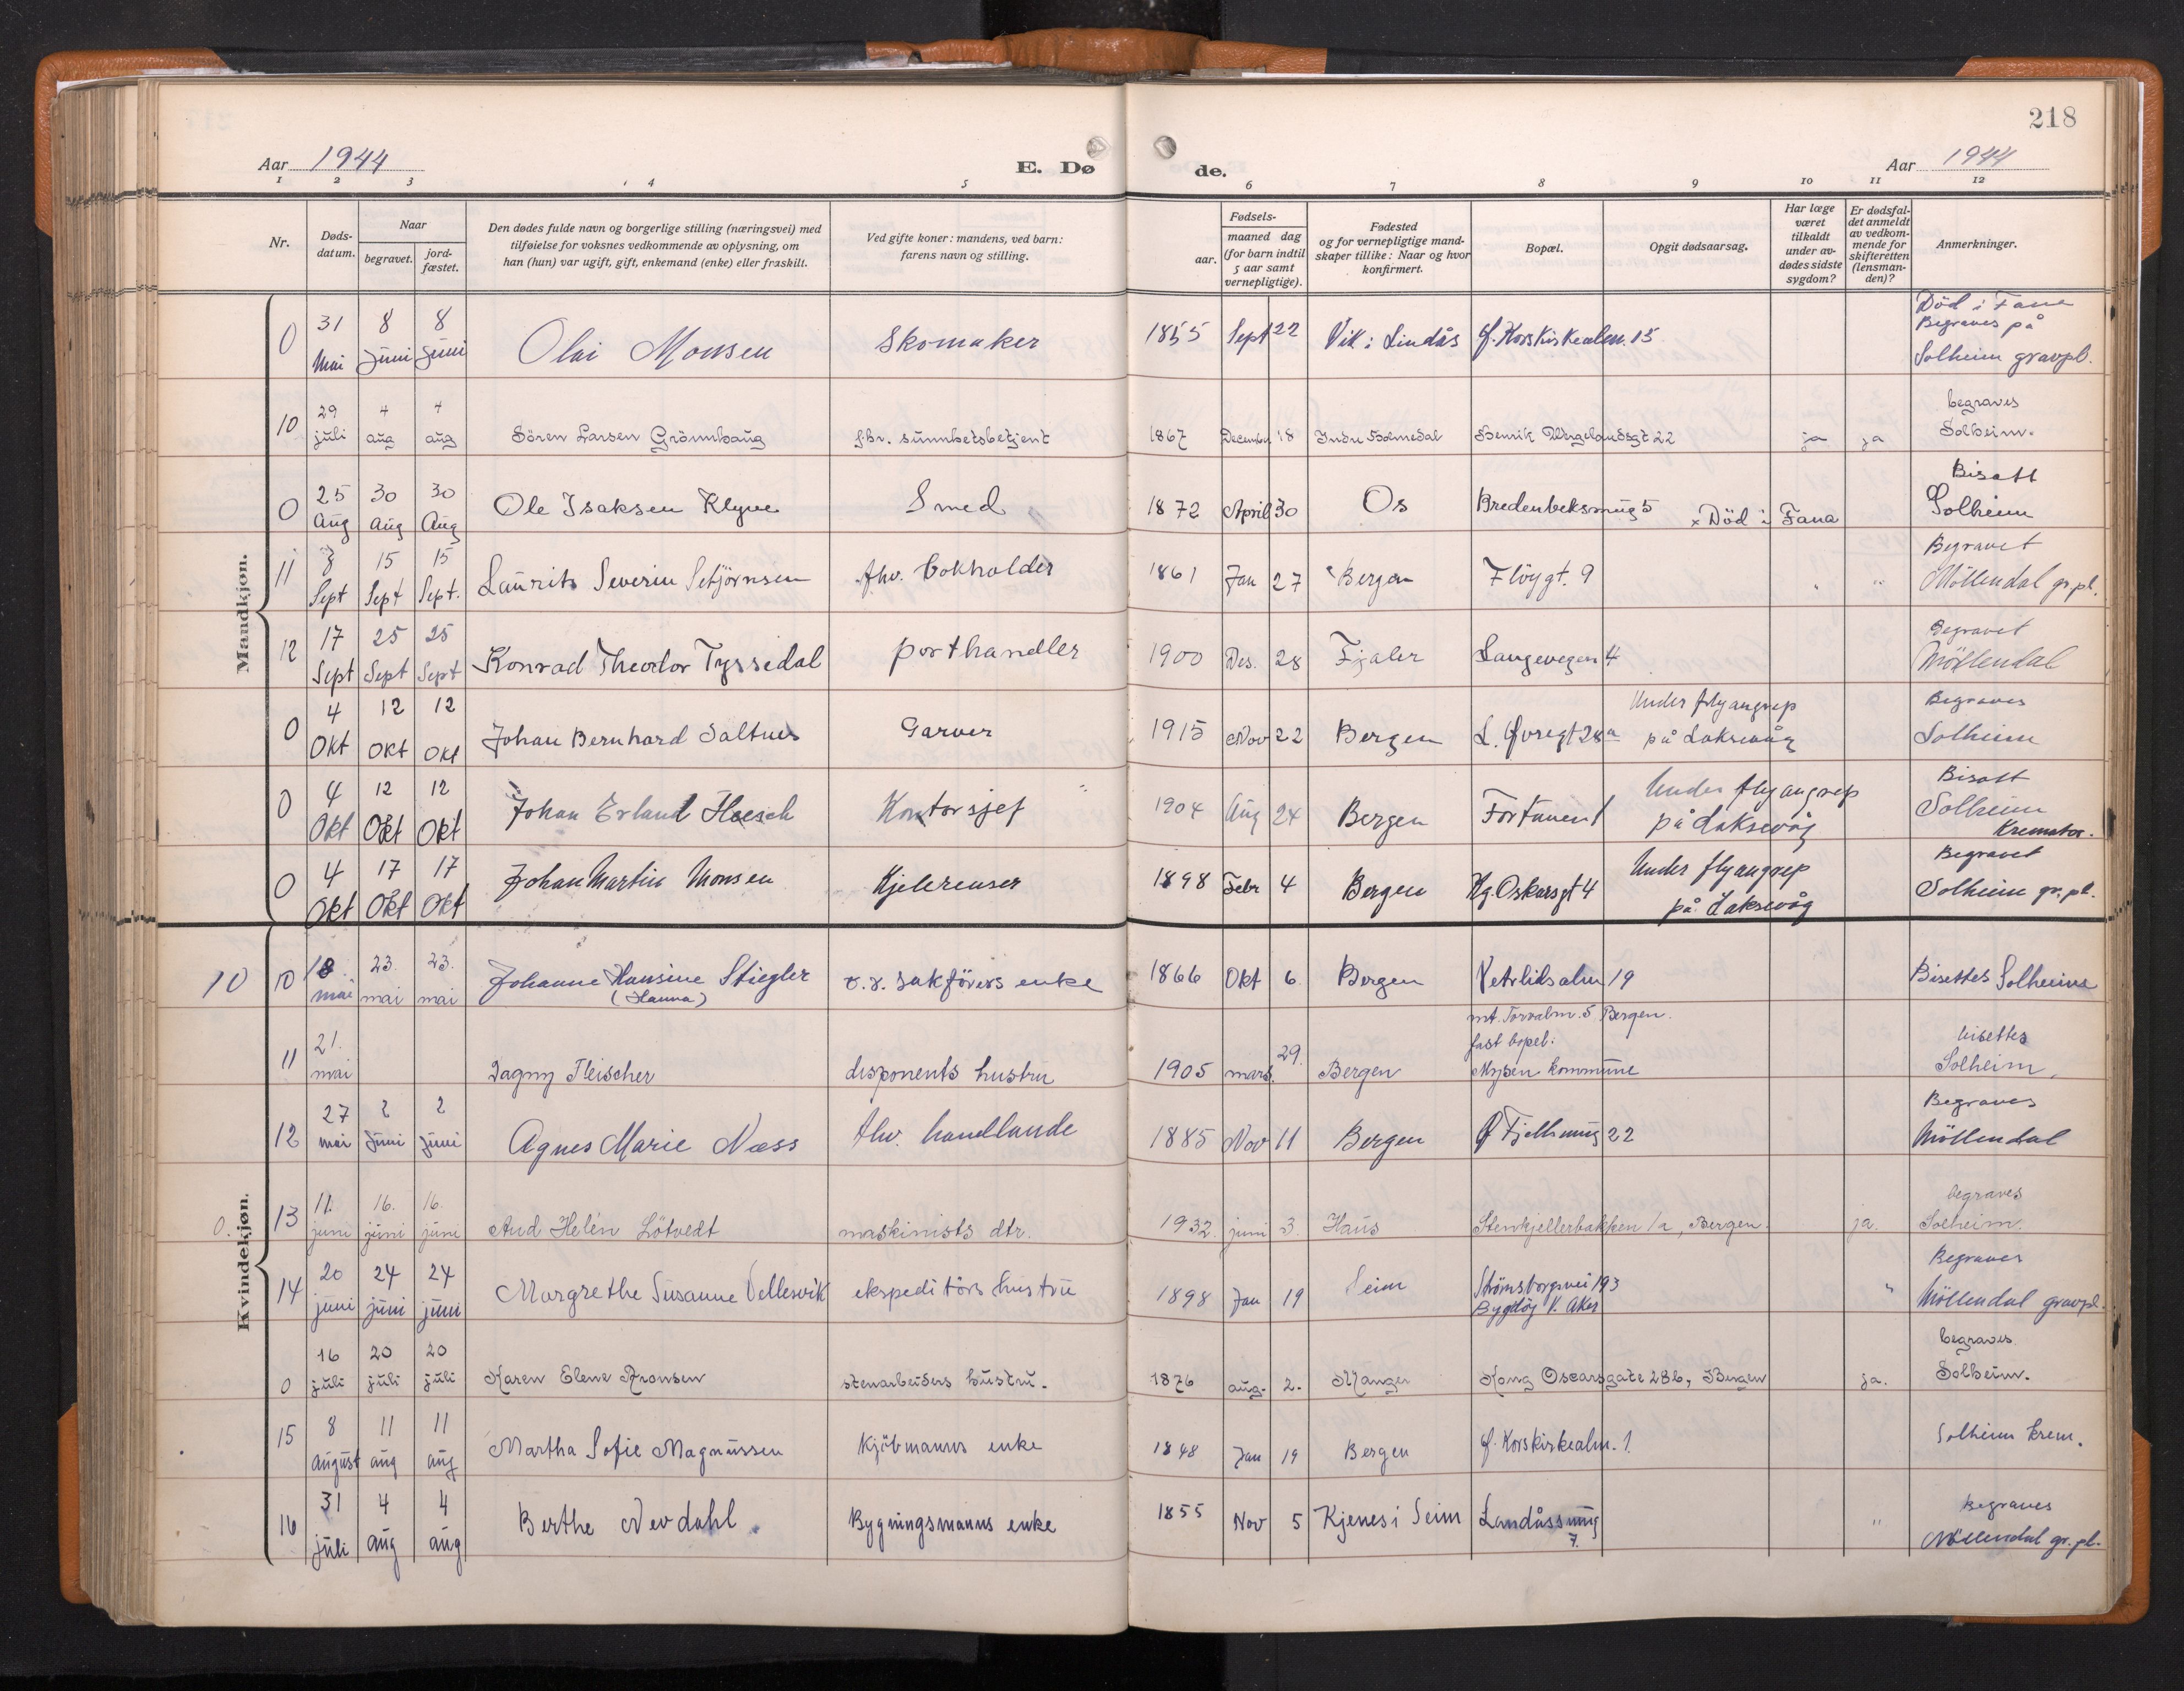 218
Aar 1944
E. Dø
de.
Aar 1944
1 2 3 4 5 6 7 8 9 10 11 12
Nr.
Døds-
datum.
Naar
begravet.
jord-
fæstet.
Den dødes fulde navn og borgerlige stilling (næringsvei) med
tilføielse for voksnes vedkommende av oplysning, om
han (hun) var ugift, gift, enkemand (enke) eller fraskilt.
Ved gifte koner: mandens, ved barn:
farens navn og stilling.
Fødsels-
aar.
maaned dag
(for barn indtil
5 aar samt
vernepligtige).
Fødested
og for vernepligtige mand-
skaper tillike: Naar og hvor
konfirmert.
Bopæl.
Opgit dødsaarsag.
Har læge
været
tilkaldt
under av-
dødes sidste
sygdom?
Er dødsfal-
det anmeldt
av vedkom-
mende for
skifteretten
(lensman-
den)?
Anmerkninger.
Mandkjøn.
0 31 Mai 8 Juni 8 Juni Olai Monsen Skomaker 1855 Sept 22 Vik i Lindås Ø. Korskirkealm. 15 Død i Fana
Begraves på
Solheim gravpl.
10 29 juli 4 aug 4 aug Sören Larsen Grönnhaug 1867 Decembr. 18 Indre Holmedal Henrik Wergelandsgt 22 ja ja begraves
Solheim.
0 25 Aug 30 Aug 30 Aug Ole Isaksen Klyve Smed 1872 April 30 Os Bredenbeksmug 5 × Död i Fana Bisatt
Solheim
11 8 Sept 15 Sept 15 Sept. Laurits Severin Setjørnsen fhv. bokholder 1861 Jan 27 Bergen Fløygt. 9 " " Begravet
Möllendal gr.pl.
12 17 Sept 25 Sept 25 Sept Konrad Theodor Tyssedal porthandler 1900 Des. 28 Fjaler Langevegen 4 Begravet
Möllendal
0 4 Okt 12 Okt 12 Okt Johan Bernhard Saltnes Garver 1915 Nov 22 Bergen L. Øvregt 28a Under flyangrep
på Laksevåg Begraves
Solheim
0 4 Okt 12 Okt 12 Okt Johan Erland Hoesch Kontorsjef 1904 Aug 24 Bergen Fortunen 1 Under flyangrep
på Laksevåg Bisatt
Solheim
Kremator.
0 4 Okt 17 Okt 17 Okt Johan Martin Monsen Kjelerenser 1898 Febr 4 Bergen Kg. Oskarsgt 4 Under flyangrep
på Laksevåg Begravet
Solheim gr.pl.
Kvindekjøn.
10 10 18. mai 23. mai 23. mai Johanne Hansine Stiegler
(Hanna) o.r. sakförers enke 1866 Okt 6 Bergen Vetrlidsalm 19 Bisettes Solheim
11 21. mai Dagny Fleischer disponents hustru 1905 mars. 29. Bergen mt. Torvalm. 5 Bergen.
fast bopel:
Mysen kommune bisettes
Solheim.
12 27 mai 2 Juni 2 Juni Agnes Marie Næss fhv. handlande 1885 Nov 11 Bergen Ø Fjellsmug 22 Begraves
Möllendal
0. 13 11. juni 16. juni 16. juni Aud Helén Lötvedt maskinists dtr. 1932. juni 3. Haus Stenkjellerbakken 1a, Bergen. ja. begraves
Solheim.
14 20 juni 24 juni 24 juni Margrethe Susanne Vellesvik ekspeditörs hustru 1898 Jan 19 Seim Strömsborgsvei 193
Bygdöy V. Aker " Begraves
Möllendal gravpl.
0 16 juli 20 juli 20 juli Karen Elene Aronsen stenarbeiders hustru. 1876 aug. 2. Manger Kong Oscarsgate 28b, Bergen ja. begraves
Solheim.
15 8 august 11 aug 11 aug Martha Sofie Magnussen Kjöbmanns enke 1848 Jan 19 Bergen Ø. Korskirkealm. 1. Solheim krem.
16 31 juli 4 aug 4 aug Berthe Nevdahl Bygningsmanns enke 1855 Nov 5 Kjenes i Seim Landåssmug
7. " Begraves
Möllendal gr.pl.